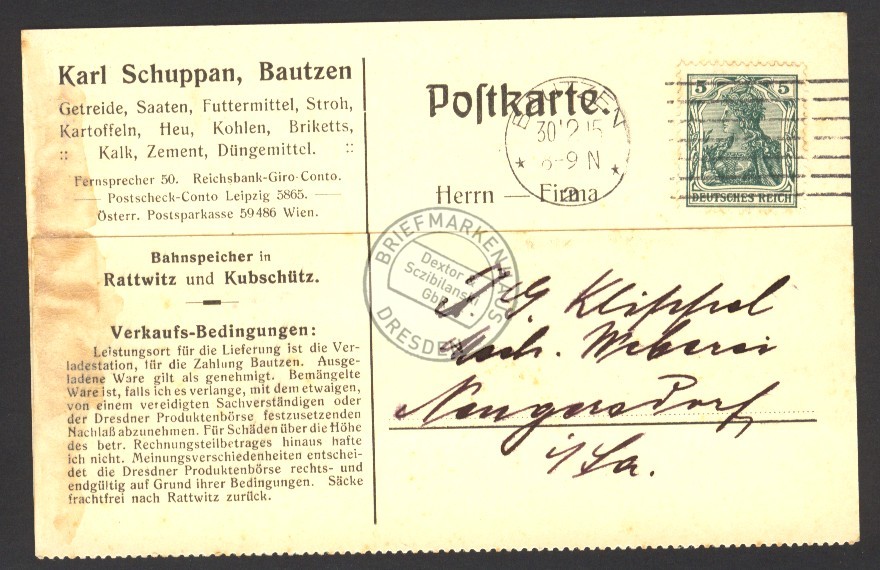 Karl Schuppan, Bautzen
Getreide, Saaten, Futtermittel, Stroh,
Kartoffeln, Heu, Kohlen, Briketts,
:: Kalk, Zement, Düngemittel. ::
Fernsprecher 50. Reichsbank-Giro-Conto.
Postscheck-Conto Leipzig 5865.
Österr. Postsparkasse 59486 Wien.
Bahnspeicher in
Rattwitz und Kubschütz.
Verkaufs-Bedingungen:
Leistungsort für die Lieferung ist die Ver-
ladestation, für die Zahlung Bautzen. Ausge-
ladene Ware gilt als genehmigt. Bemängelte
Ware ist, falls ich es verlange, mit dem etwaigen,
von einem vereidigten Sachverständigen oder
der Dresdner Produktenbörse festzusetzenden
Nachlaß abzunehmen. Für Schäden über die Höhe
des betr. Rechnungsteilbetrages hinaus hafte
ich nicht. Meinungsverschiedenheiten entschei-
det die Dresdner Produktenbörse rechts- und
endgültig auf Grund ihrer Bedingungen. Säcke
frachtfrei nach Rattwitz zurück.
Poſtkarte.
BAUTZEN
30 12 15
8-9 N
2
5 5
DEUTSCHES REICH
Herrn — Firma
BRIEFMARKENHAUS
Dextor &
Sczibilanski
GbR
DRESDEN
G. Klippel
Mech. Weberei
Neugersdorf
i/Sa.